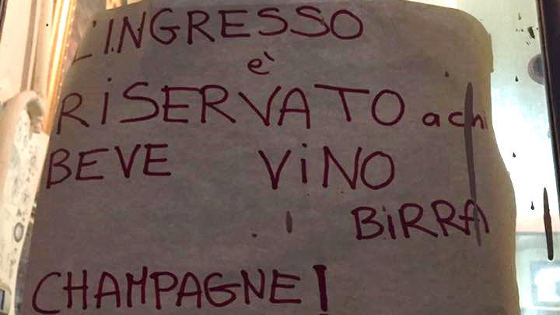 L'INGRESSO
è
RISERVATO a chi
BEVE VINO
BIRRA
CHAMPAGNE!